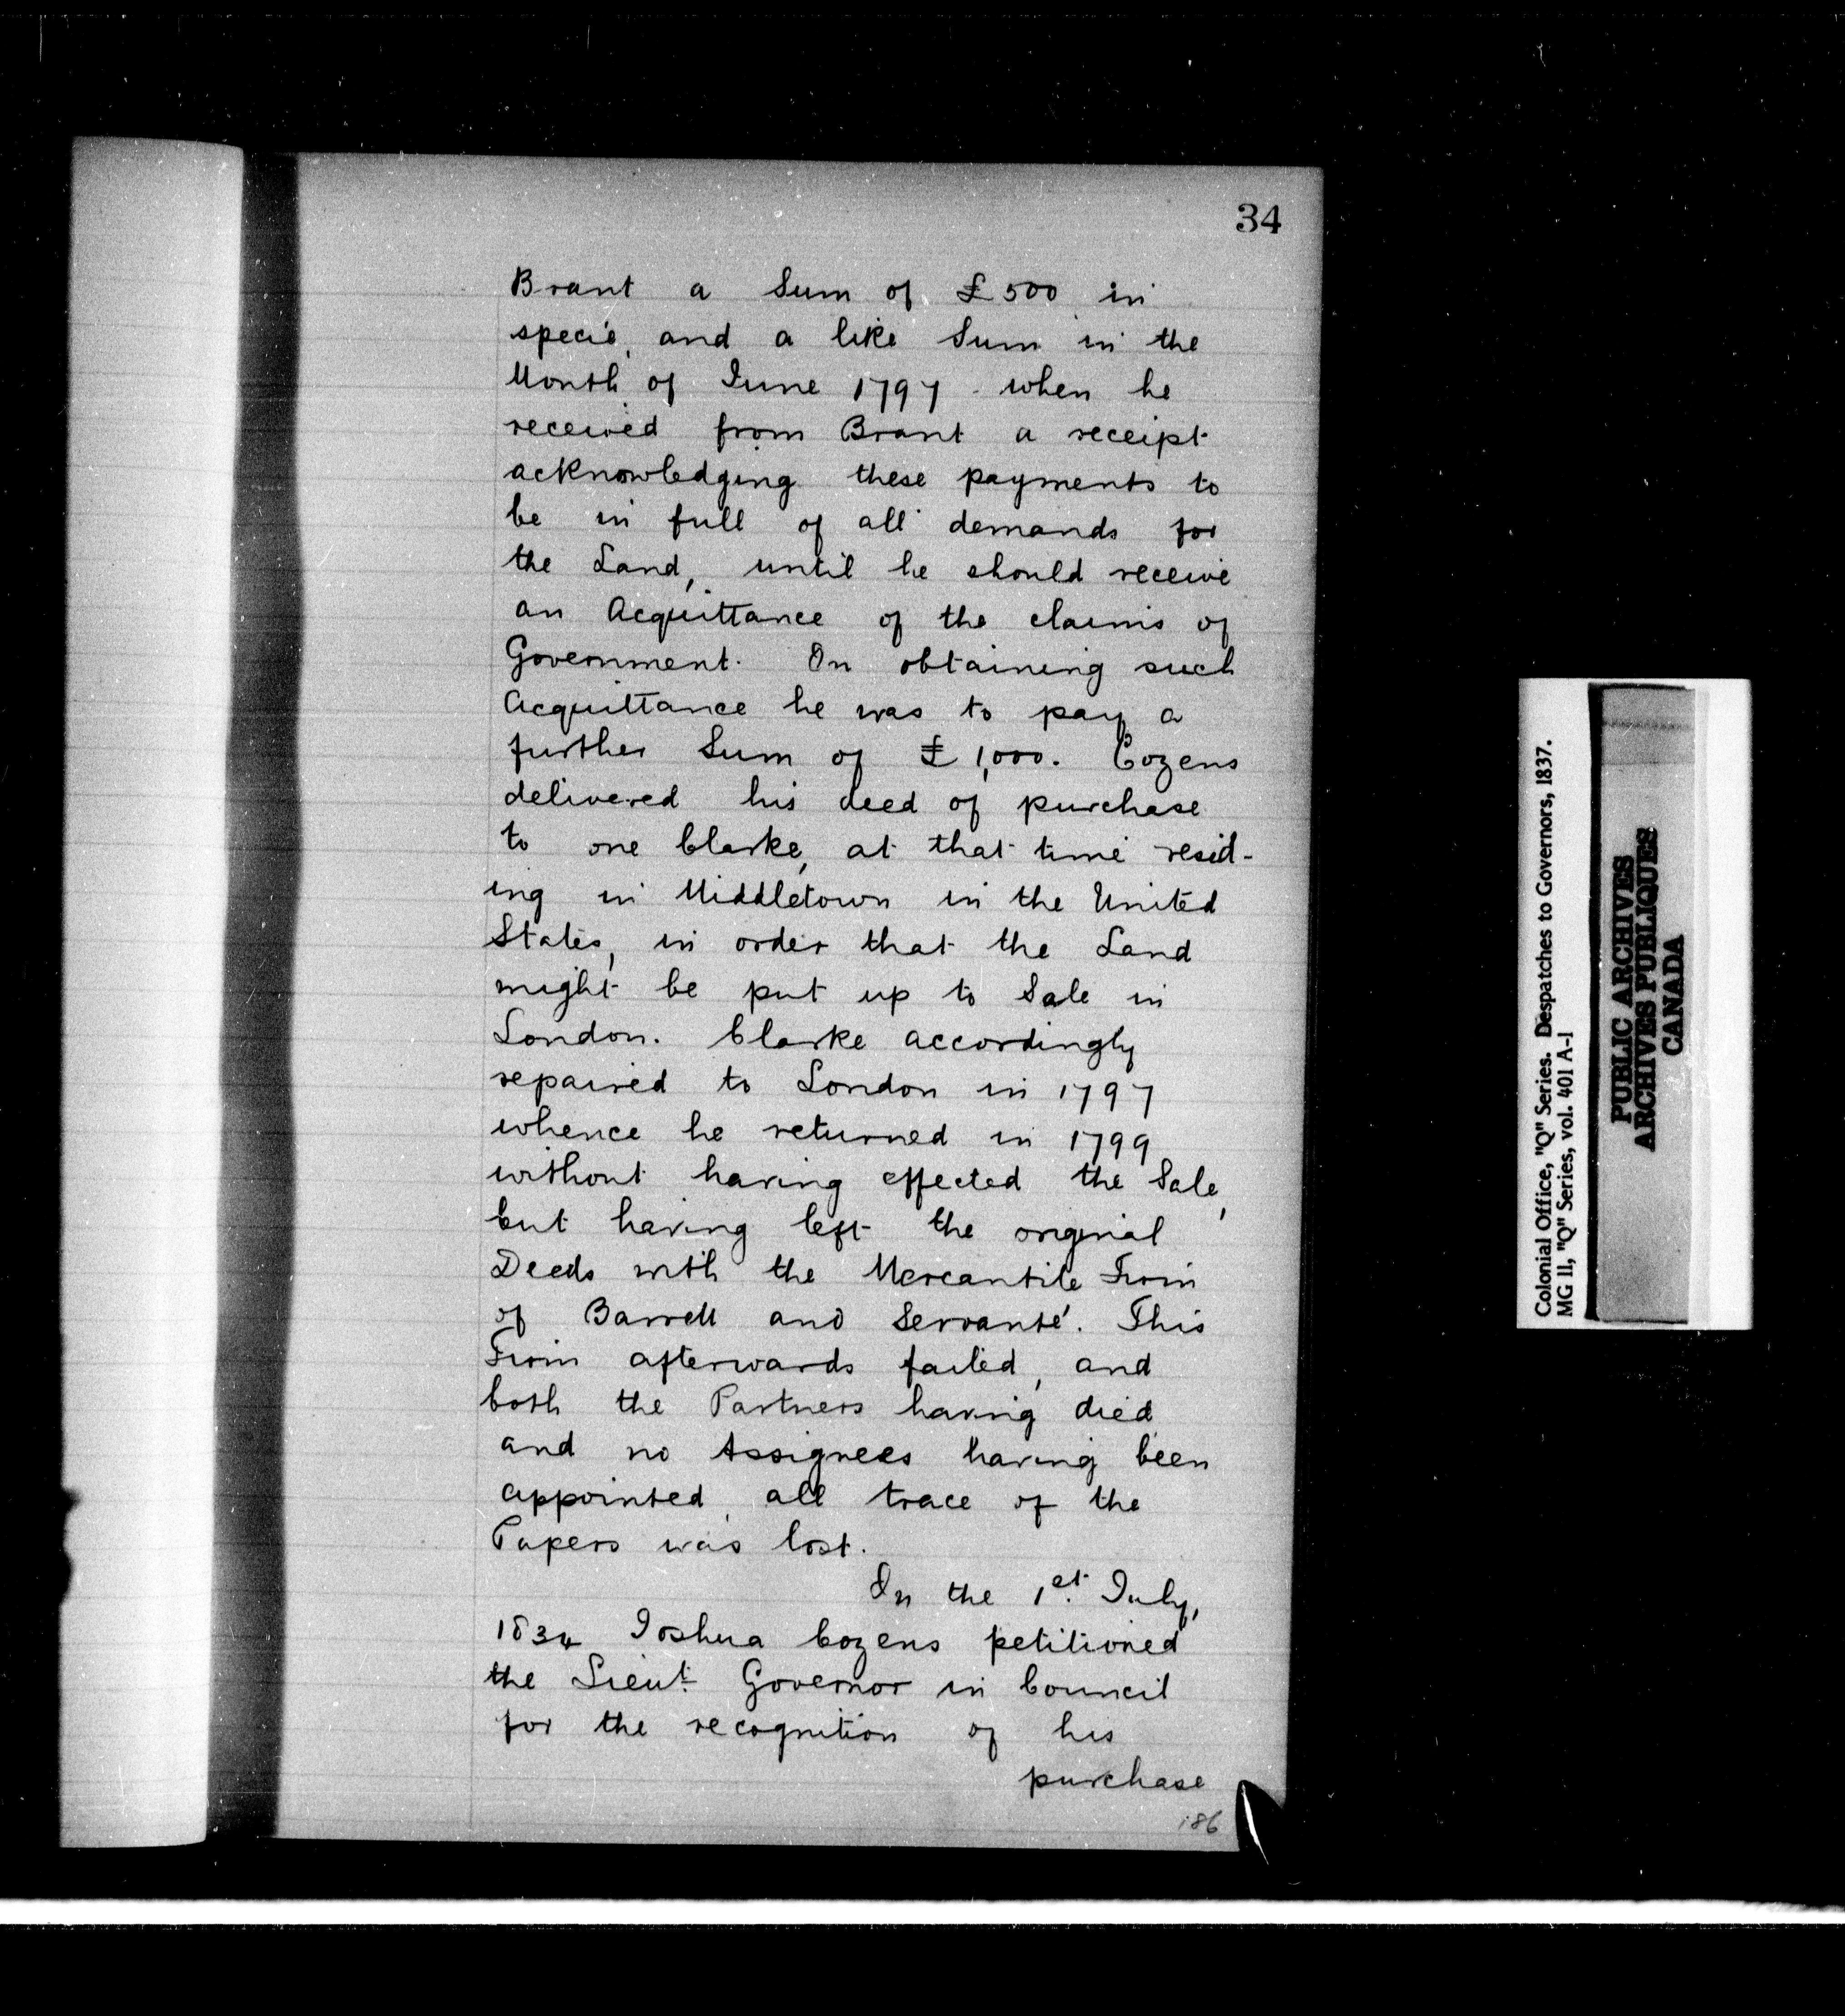 34
Brant a Sum of £500 in
specie, and a like Sum in the
Month of June 1797 - when he
received from Brant a receipt
acknowledging these payments to
be in full of all demands for
the Land, until he should receive
an Acquittance of the claims of
Government. On obtaining such
Acquittance he was to pay a
further Sum of £1,000. Cozens
delivered his deed of purchase
to one Clarke, at that time resid-
ing in Middletown in the United
States, in order that the Land
might be put up to Sale in
London. Clarke accordingly
repaired to London in 1797
whence he returned in 1799
without having effected the Sale,
but having left the original
Deeds with the Mercantile Firm
of Barrell and Servanté. This
Firm afterwards failed, and
both the Partners having died
and no Assignees having been
appointed, all trace of the
Papers was lost.
On the 1st. July,
1834 Joshua Cozens petitioned
the Lieut. Governor in Council
for the recognition of his
purchase
186
Colonial Office, "Q" Series. Despatches to Governors, 1837.
MG 11, "Q" Series, vol. 401 A-1
PUBLIC ARCHIVES
ARCHIVES PUBLIQUES
CANADA